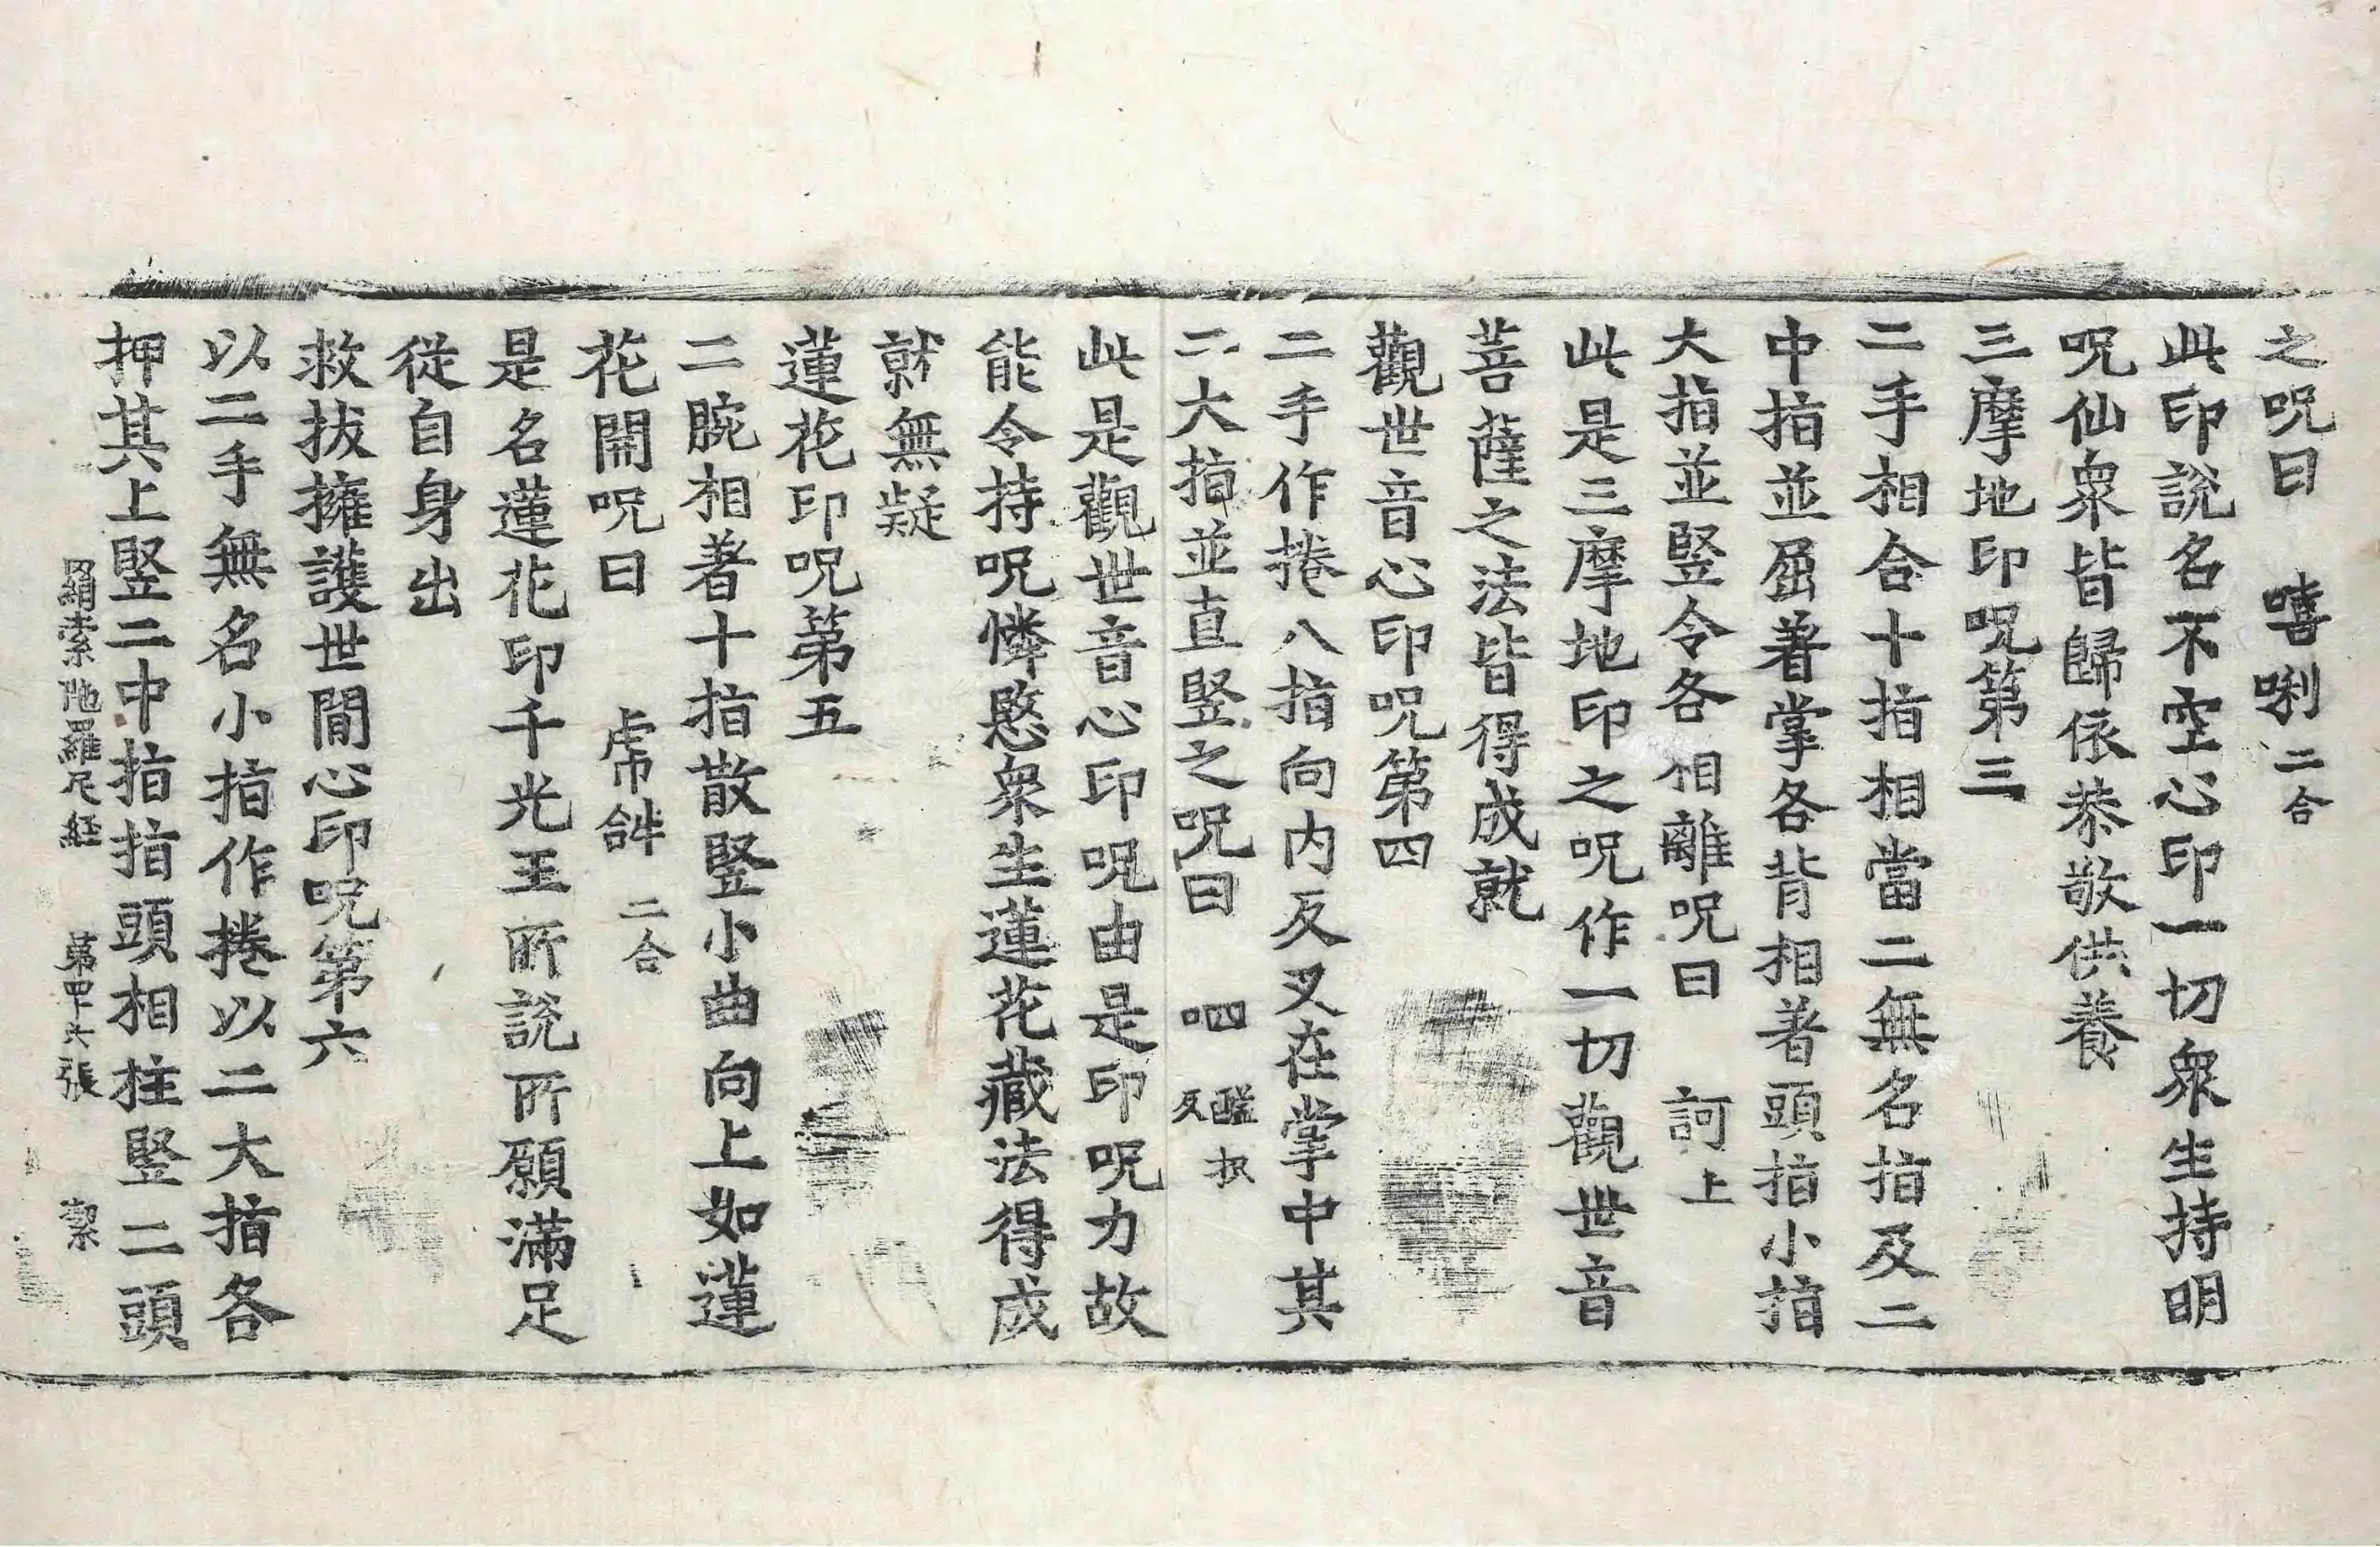 之呪曰 嘻唎二合
此印說名不空心印一切衆生持明
呪仙衆皆歸依恭敬供養
三摩地印呪第三
二手相合十指相當二無名指及二
中指並屈著掌各背相著頭指小指
大指並竪令各相離呪曰 訶上
此是三摩地印之呪作一切觀世音
菩薩之法皆得成就
觀世音心印呪第四
二手作捲八指向内反叉在掌中其
二大指並直竪之呪曰 呬醯扠反
此是觀世音心印呪由是印呪力故
能令持呪憐愍衆生蓮花藏法得成
就無疑
蓮花印呪第五
二腕相著十指散竪小曲向上如蓮
花開呪曰 二合
是名蓮花印千光王所說所願滿足
從自身出
救拔擁護世間心印呪第六
以二手無名小指作捲以二大指各
押其上竪二中指指頭相拄竪二頭
羂索陁羅尼経 第四十六張 潔